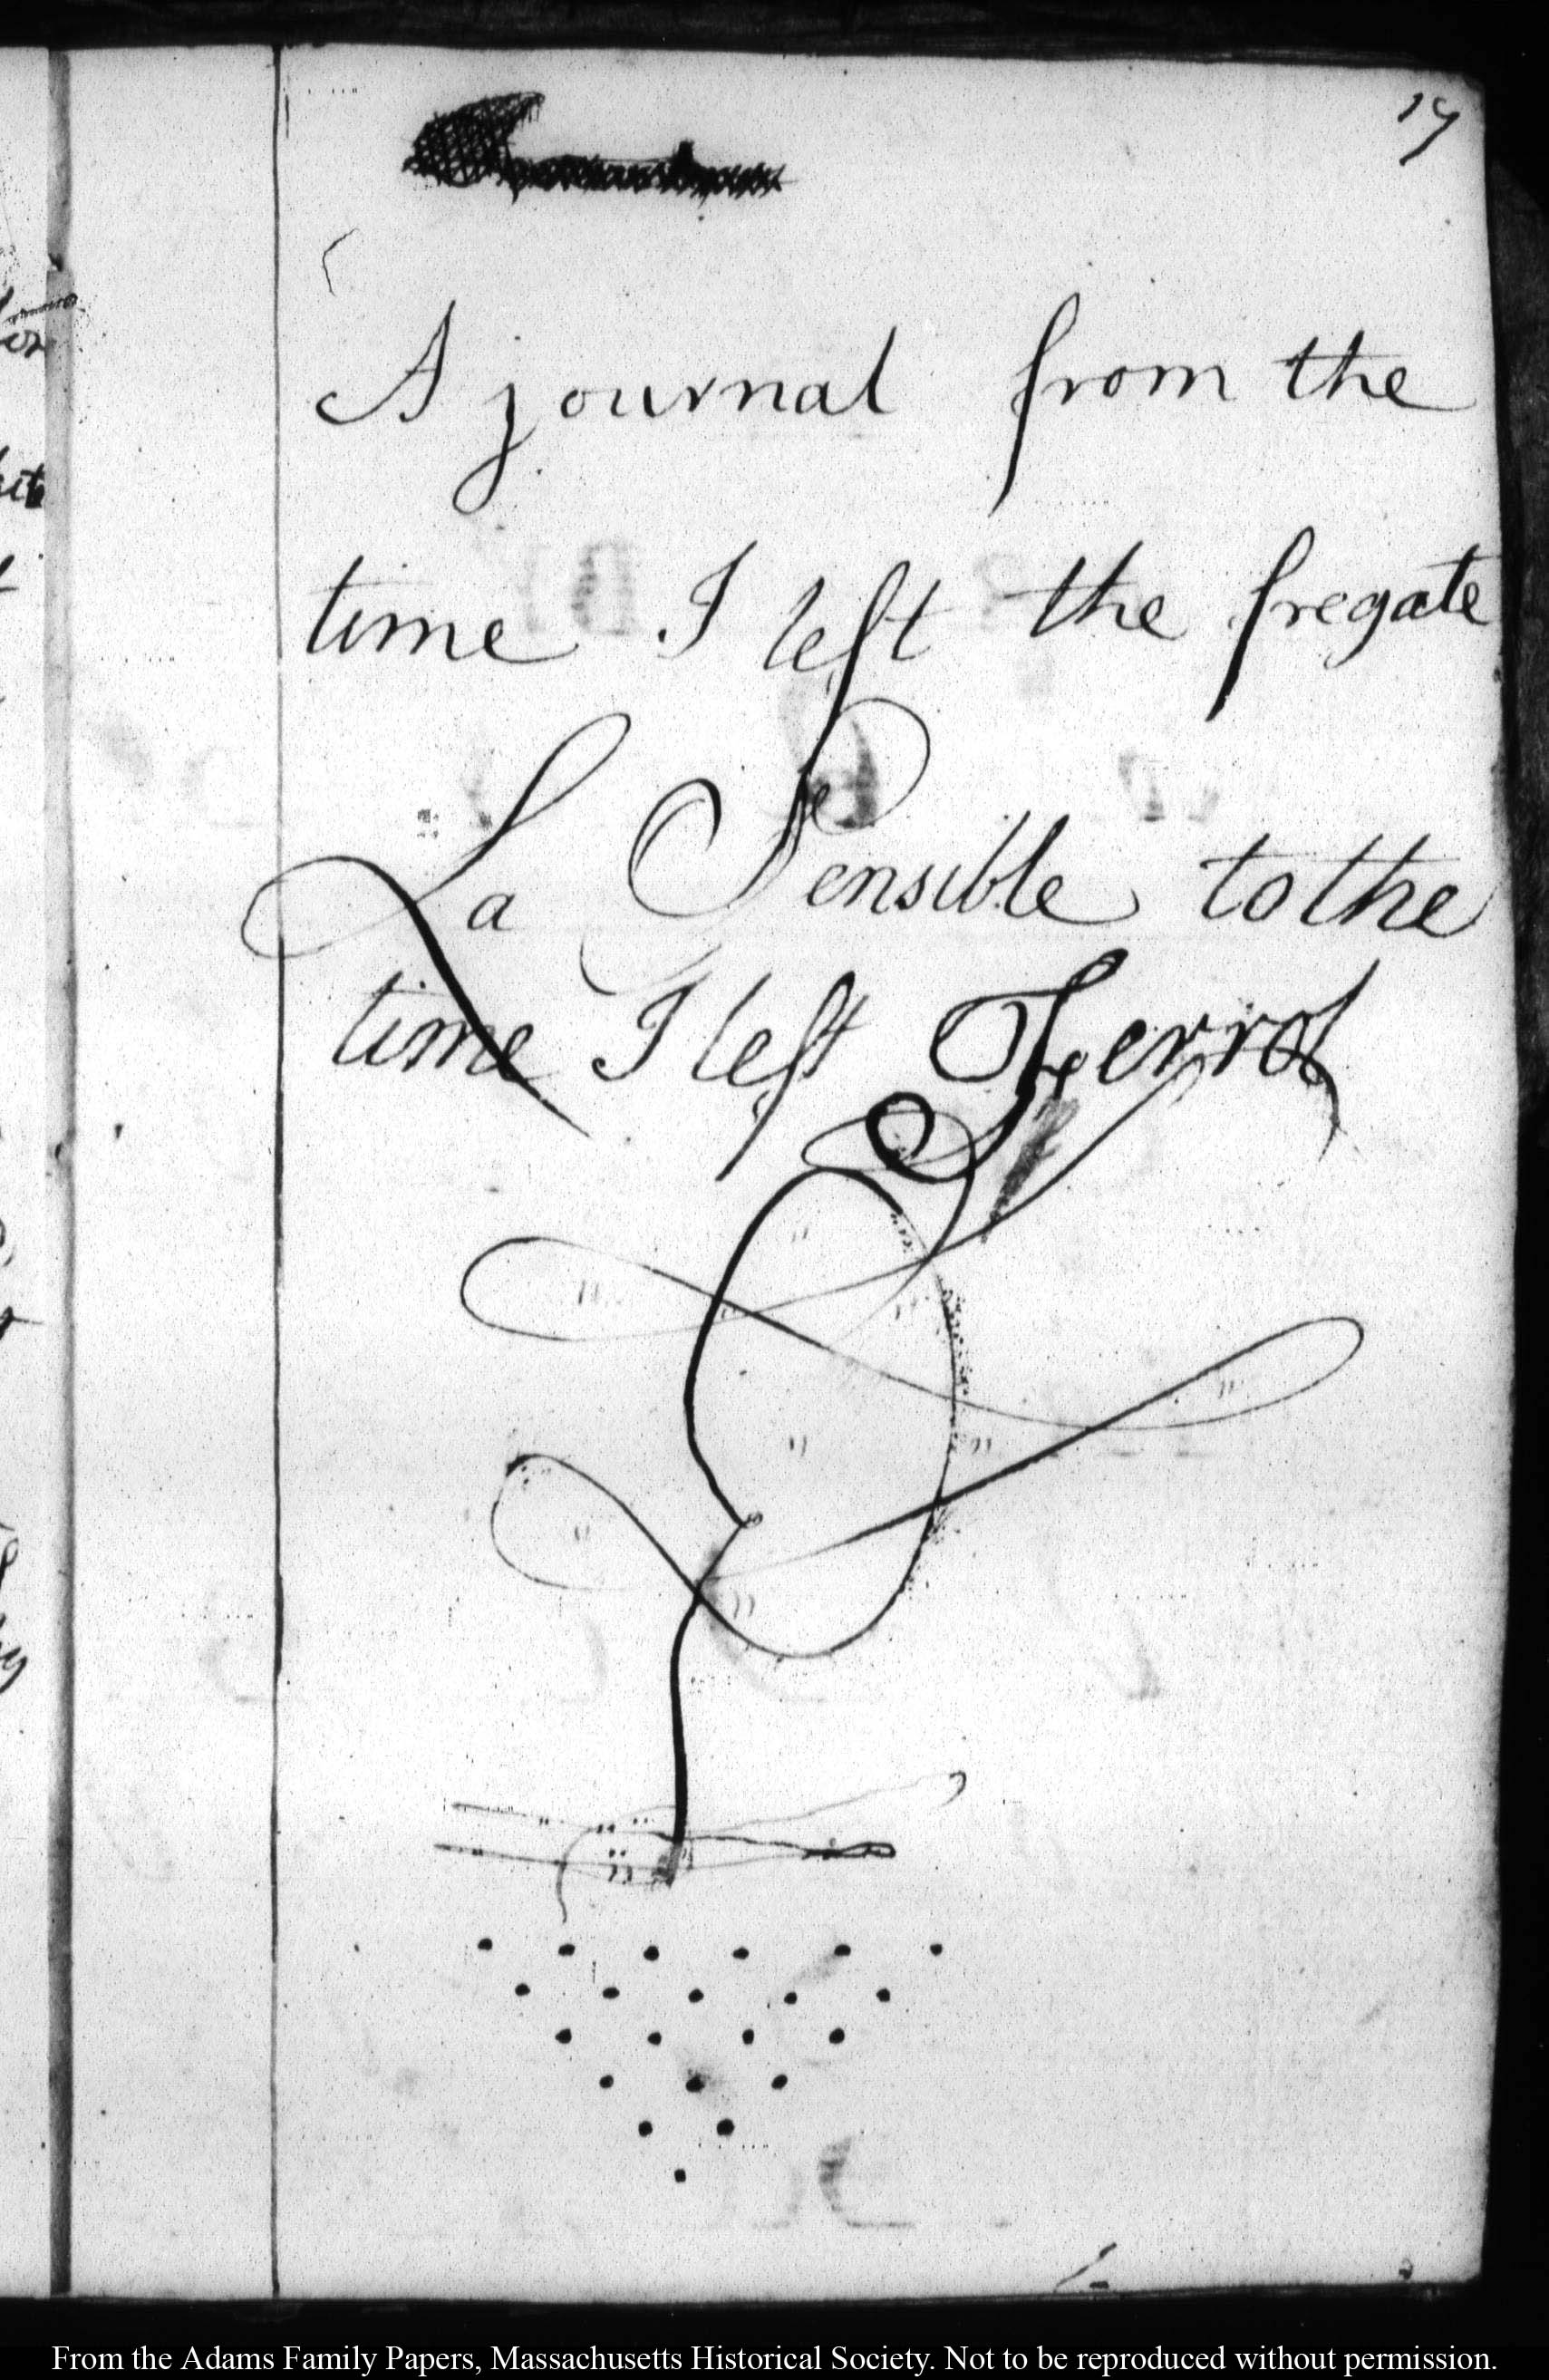 19
A journal from the
time I left the fregate
La Sensible to the
time I left Ferrol
From the Adams Family Papers, Massachusetts Historical Society. Not to be reproduced without permission.